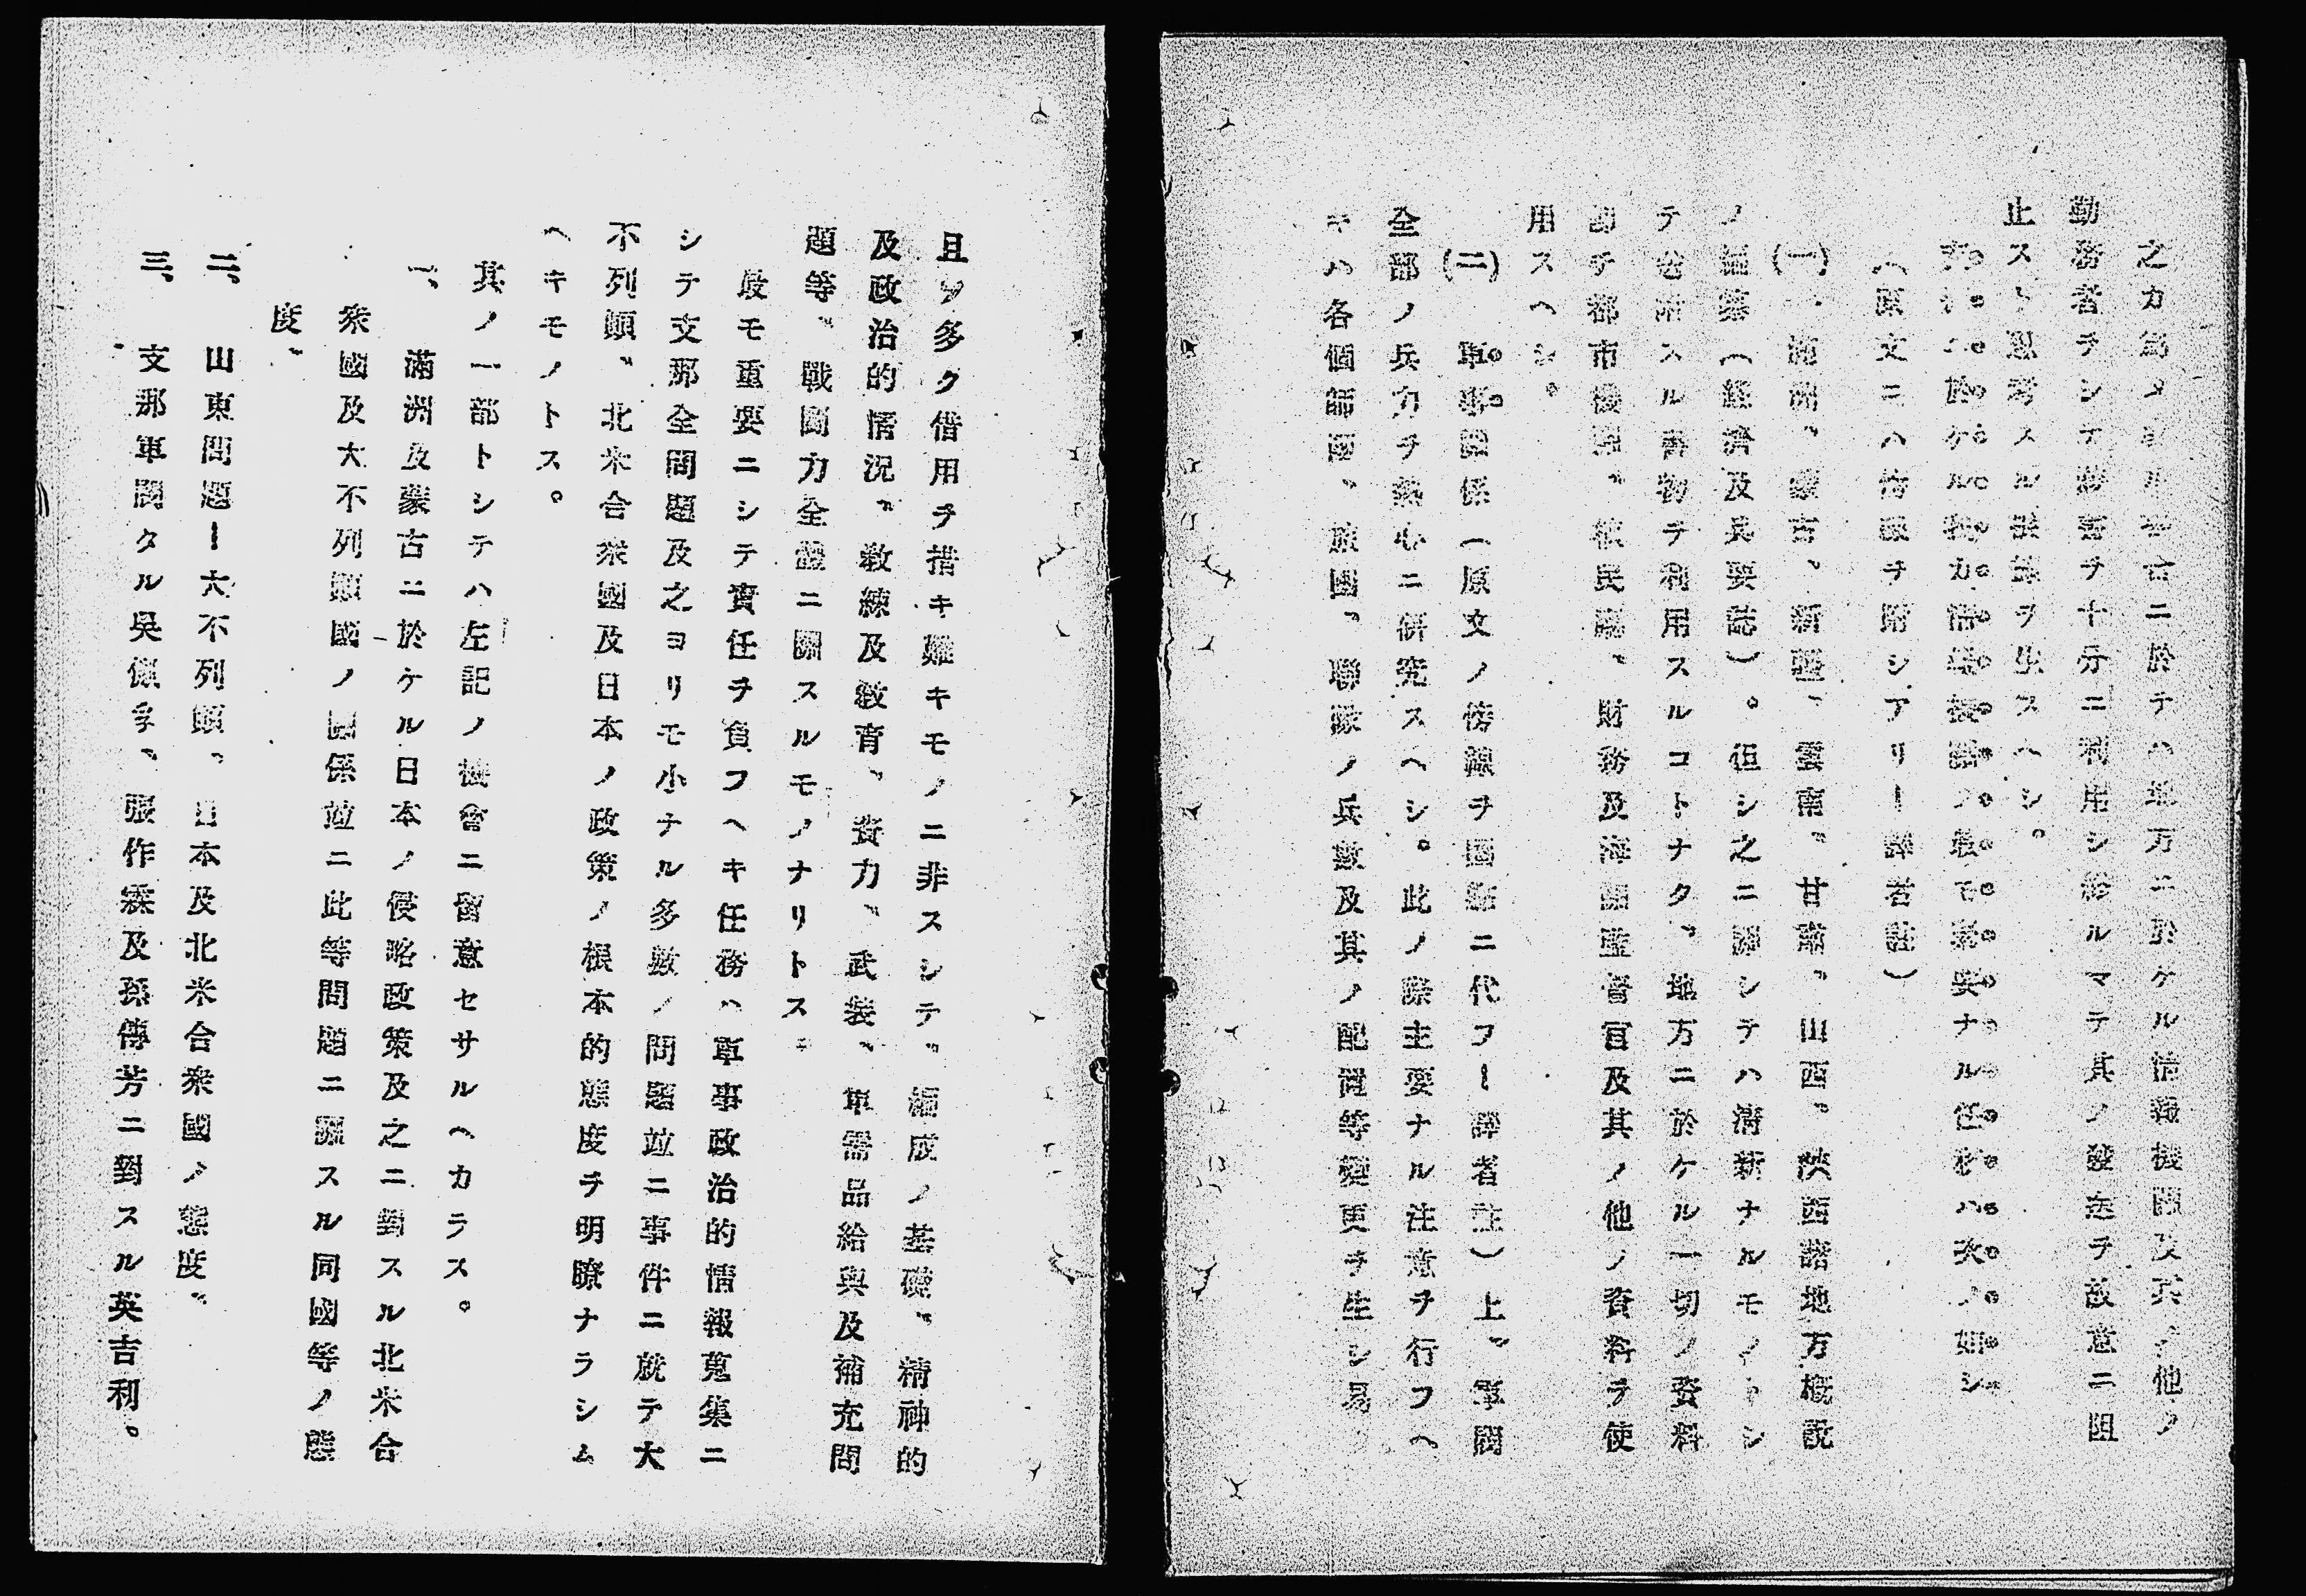 之カ為メ斯ル場合ニ於テハ地方ニ於ケル情報機關及其ノ他ノ
勤務者ヲシテ妨害ヲ十分ニ利用シ得ルマテ其ノ發送ヲ故意ニ阻
止スト思考スル誤解ヲ生スヘシ。
支那ニ於ケル我カ情報機關ノ最モ緊要ナル任務ハ次ノ如シ
(原文ニハ傍線ヲ附シアリー譯者註)
(一)、滿洲、蒙古、新疆、雲南、甘肅、山西、陝西諸地方槪説
ノ編纂(經濟及兵要誌)。但シ之ニ關シテハ淸新ナルモノトシ
テ包括スル書物ヲ利用スルコトナク、地方ニ於ケル一切ノ資料
卽チ都市機關、職民團、財務及海關監督官及其ノ他ノ資料ヲ使
用スヘシ。
(二) 軍事關係(原文ノ傍線ヲ圈點ニ代フー譯者註)上、軍閥
全部ノ兵力ヲ熱心ニ硏究スヘシ。此ノ際主要ナル注意ヲ行フヘ
キハ各個師團、旅團、聯隊ノ兵數及其ノ配置等變更ヲ生シ易
且ツ多ク借用ヲ措キ難キモノニ非スシテ、編成ノ基礎、精神的
及政治的情況、敎練及敎育、資力、武装、軍需品給與及補充問
題等、戰鬪力全體ニ關スルモノナリトス。
最モ重要ニシテ責任ヲ負フヘキ任務ハ軍事政治的情報蒐集ニ
シテ支那全問題及之ヨリモ小ナル多數ノ問題竝ニ事件ニ就テ大
不列顚、北米合衆國及日本ノ政策ノ根本的態度ヲ明瞭ナラシム
ヘキモノトス。
其ノ一部トシテハ左記ノ機會ニ留意セサルヘカラス。
一、滿洲及蒙古ニ於ケル日本ノ侵略政策及之ニ對スル北米合
衆國及大不列顚國ノ關係竝ニ此等問題ニ關スル同國等ノ態
度、
二、山東問題ー大不列顚、日本及北米合衆國ノ態度、
三、支那軍閥タル吳佩孚、張作霖及孫傳芳ニ對スル英吉利。